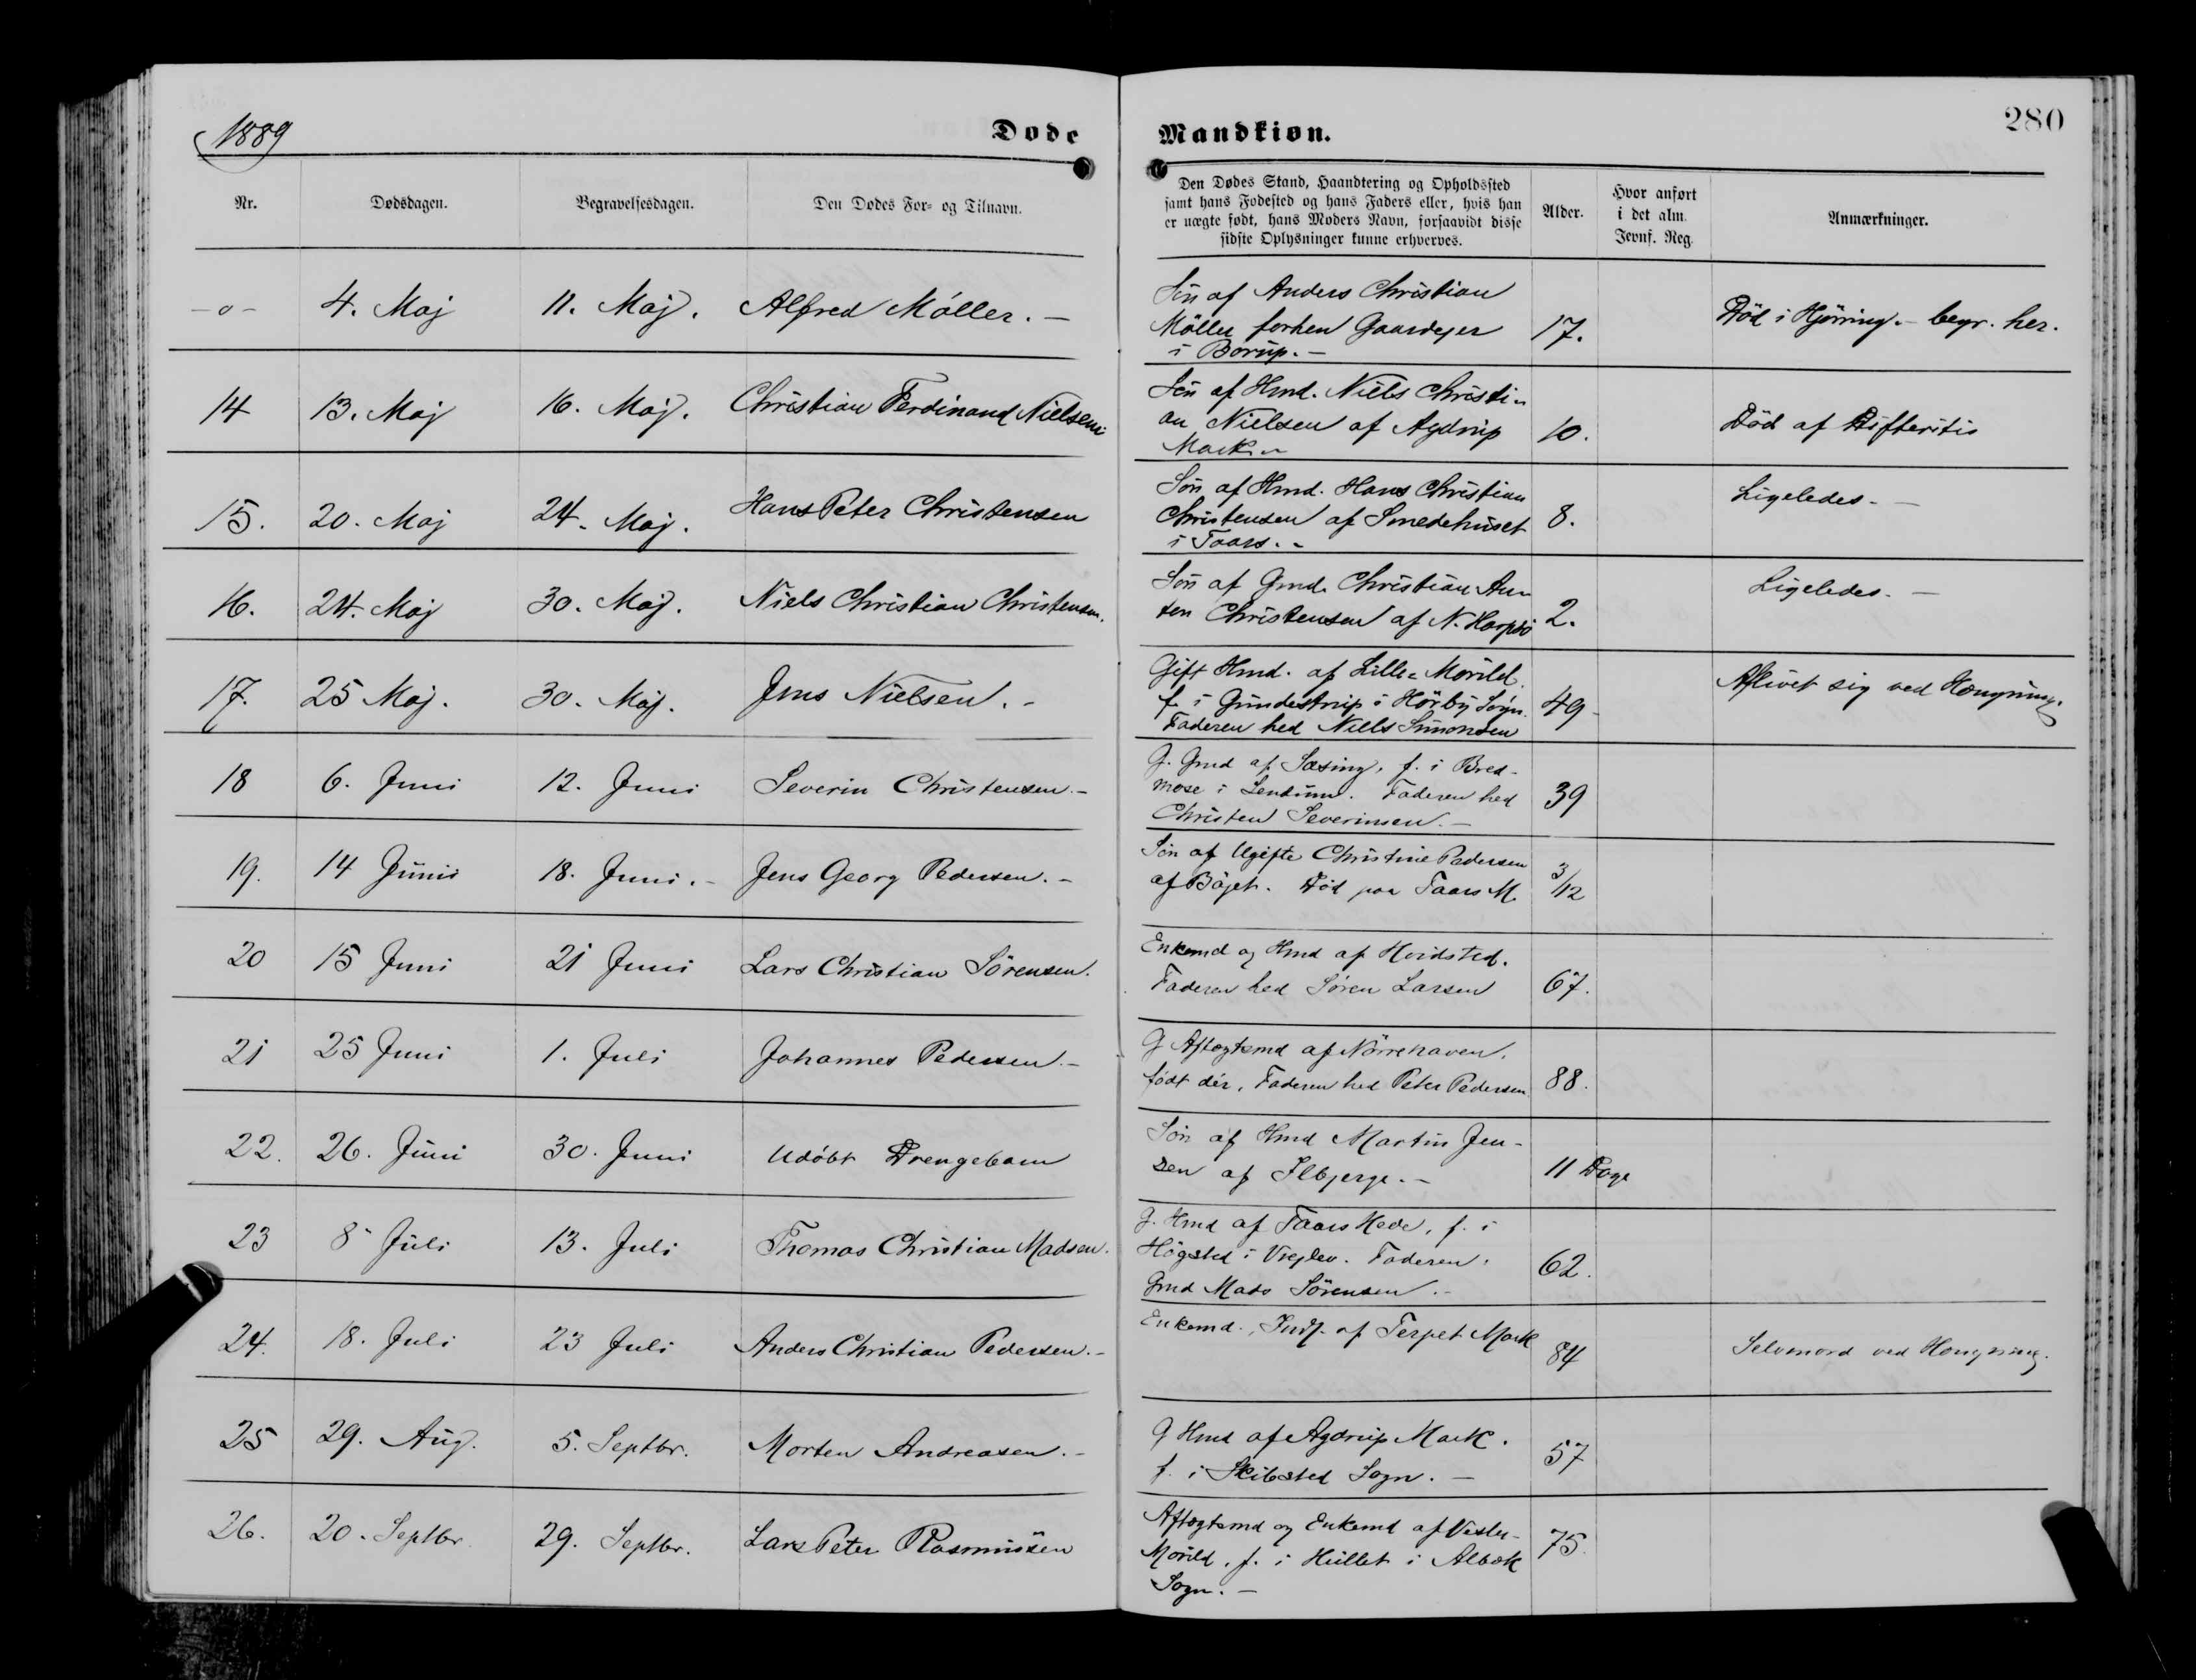 1889
Døde
Mandkiøn.
280
Nr.
Dødsdagen.
Begravelsesdagen.
Den Dødes For- og Tilnavn.
Den Dødes Stand, Haandtering og Opholdssted
samt hans Fødested og hans Faders eller, hvis han
er uægte født, hans Moders Navn, forsaavidt disse
sidste Oplysninger kunne erhverves.
Alder.
Hvor anført
i det alm.
Jevnf. Reg.
Anmærkninger.
-o-
4. Maj
11. Maj.
Alfred Møller. -
Søn af Anders Christian
Møller forhen Gaardejer
i Borup. -
17.
Død i Hjørring. - begr. her.
14
13. Maj
16. Maj.
Christian Ferdinand Nielsen
Søn af Hmd. Niels Christi-
an Nielsen af Agdrup
Mark. -
10.
Død af Difteritis
15.
20. Maj
24. Maj.
Hans Peter Christensen
Søn af Hmd. Hans Christian
Christensen af Smedehuset
i Taars. -
8.
Ligeledes. -
16.
24. Maj
30. Maj.
Niels Christian Christensen.
Søn af Gmd. Christian An-
ton Christensen af N. Harpsø
2.
Ligeledes. -
17.
25 Maj.
30. Maj.
Jens Nielsen. -
Gift Hmd. af Lille-Morild.
f. i Gundestrup i Hørby Sogn.
Faderen hed Niels Simonsen
49
Aflivet sig ved Hængning.
18
6. Juni
12. Juni
Severin Christensen. -
G. Gmd af Sæsing, f. i Bred-
mose i Lendum. Faderen hed
Christen Severinsen. -
39
19.
14 Juni
18. Juni. -
Jens Georg Pedersen. -
Søn af Ugifte Christine Pedersen
af Bøjet. Død paa Taars M.
3/12
20
15 Juni
21 Juni
Lars Christian Sörensen.
Enkemd og Hmd af Hvidsted.
Faderen hed Søren Larsen
67.
21
25 Juni
1. Juli
Johannes Pedersen. -
G Aftægtsmd af Nørrehaven.
født dér, Faderen hed Peter Pedersen
88.
22.
26. Juni
30. Juni
Udöbt Drengebarn
Søn af Hmd Martin Jen-
sen af Ilbjerge. -
11 Dage
23
8 Juli
13. Juli
Thomas Christian Madsen.
G. Hmd af Taars Hede, f. i
Högsted i Vrejlev. Faderen.
Gmd Mads Sörensen. -
62.
24.
18. Juli
23 Juli
Anders Christian Pedersen. -
Enkemd., Inds. af Terpet Mark
84
Selvmord ved Hængning.
25
29. Aug.
5. Septbr.
Morten Andreasen. -
G Hmd af Agdrup Mark.
f. i Skibsted Sogn. -
57
26.
20. Septbr
29. Septbr.
Lars Peter Rasmussen
Aftægtsmd og Enkemd af Vester-
Morild, f. i Hullet i Albæk
Sogn. -
75.